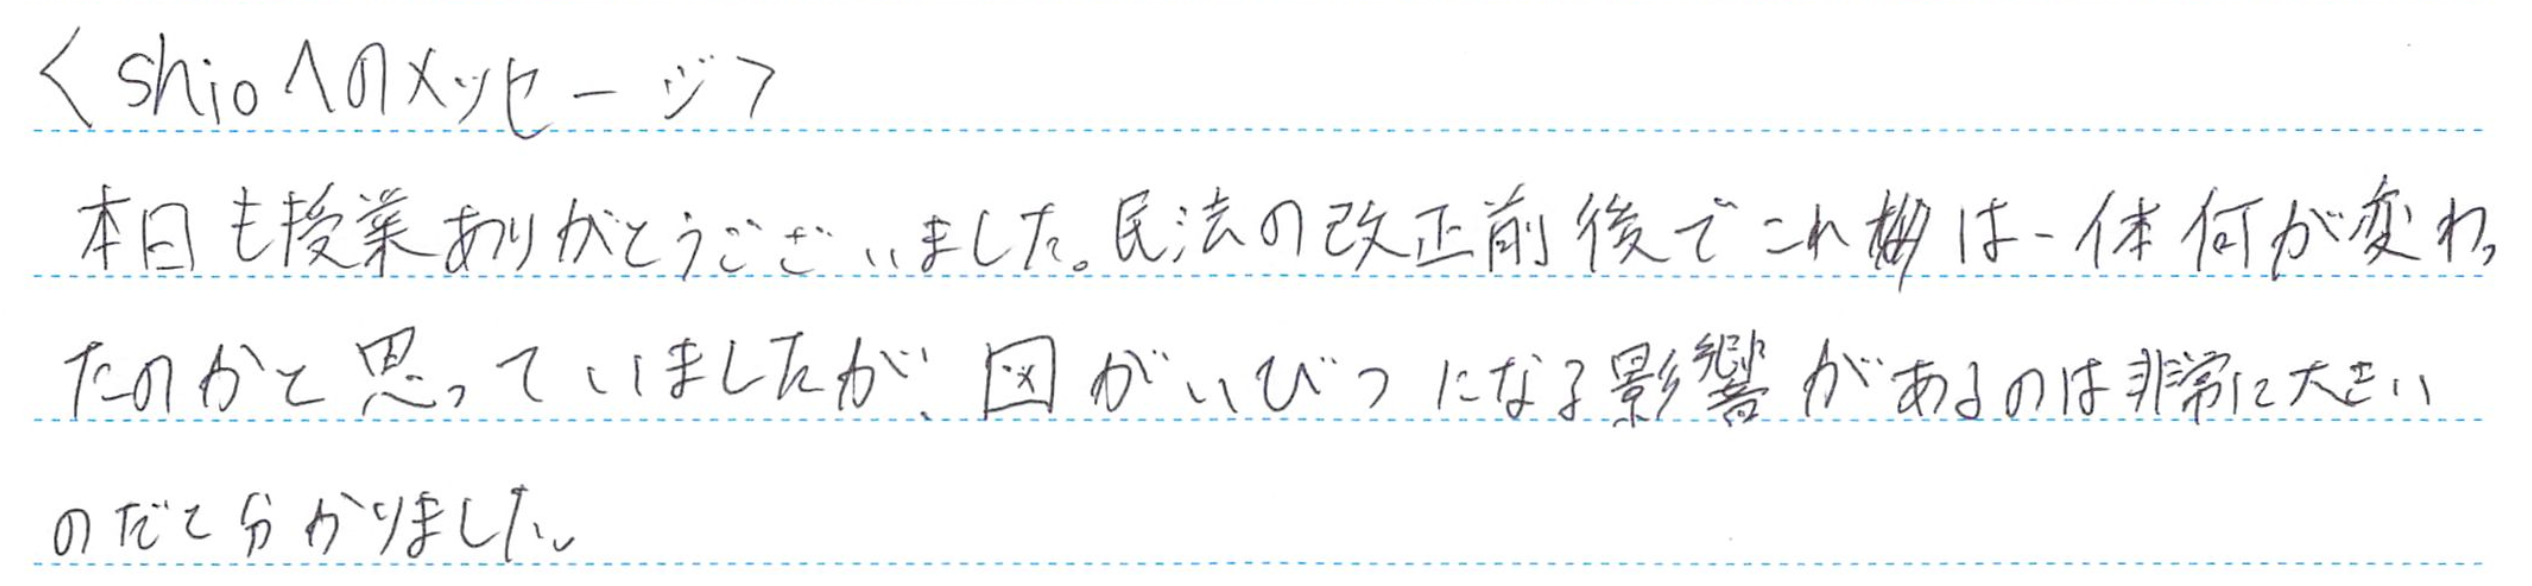 <shioへのメッセージ>
本日も授業ありがとうございました。民法の改正前後でこれ は一体何が変わっ
たのかと思っていましたが、図がいびつになる影響があるのは非常に大きい
のだと分かりました。